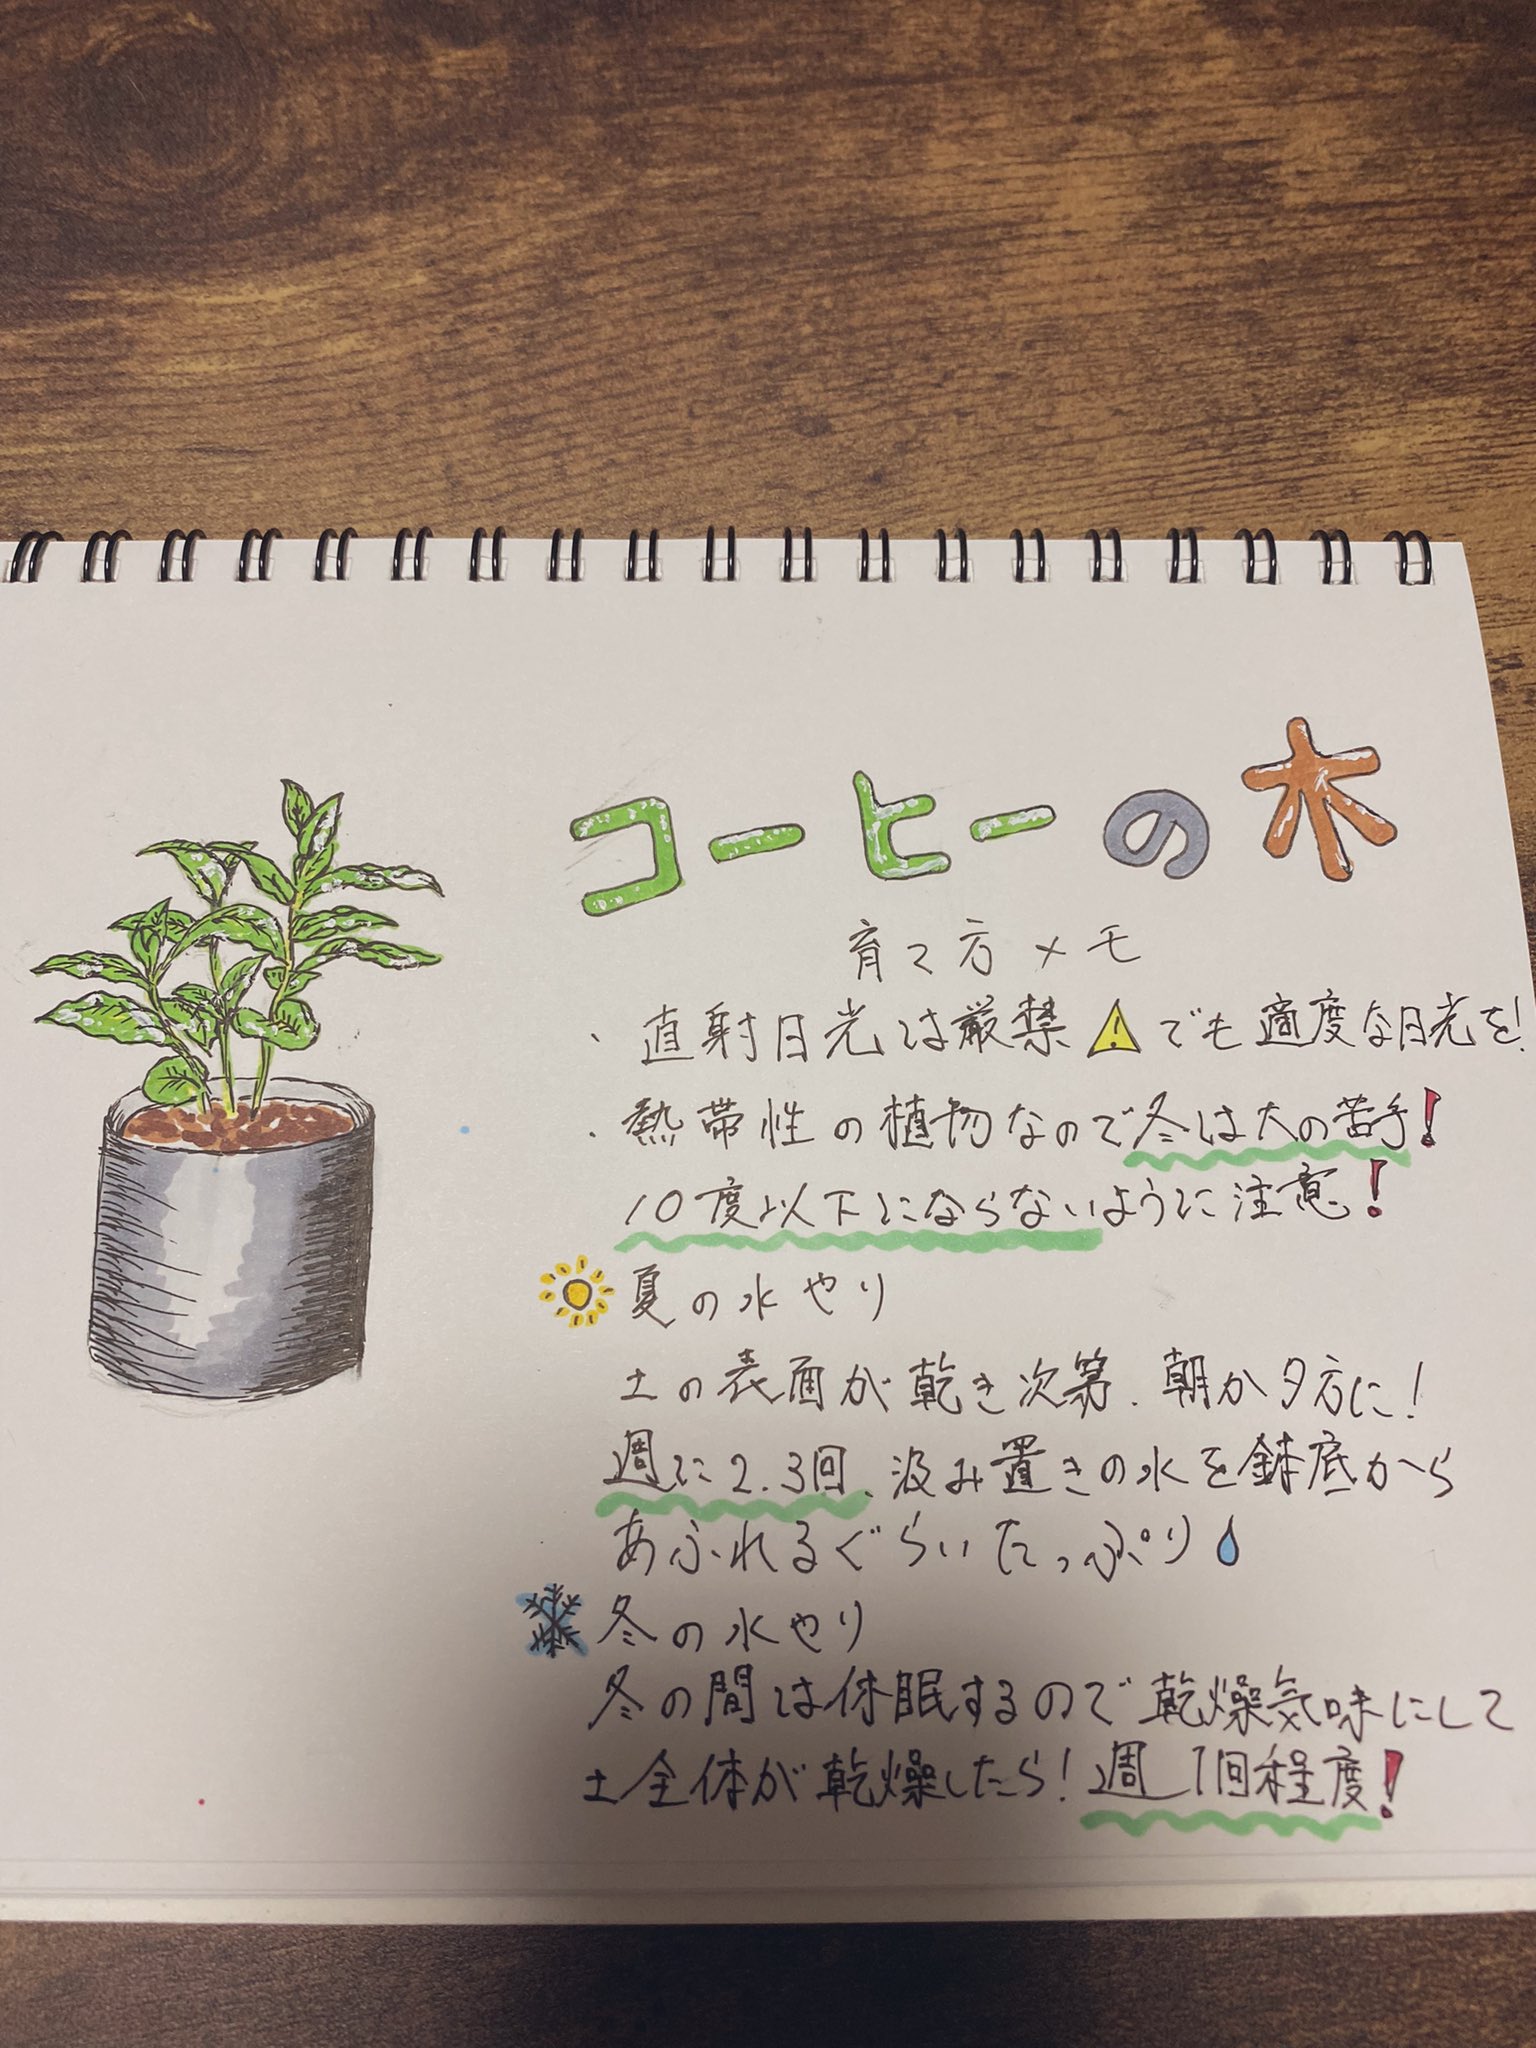 コーヒーの木
育て方メモ
・直射日光は厳禁⚠でも適度な日光を!
・熱帯性の植物なので冬は大の苦手!
10度以下にならないように注意!
夏の水やり
土の表面が乾き次第、朝か夕方に!
週に2.3回、汲み置きの水を鉢底から
あふれるぐらいたっぷり
冬の水やり
冬の間は休眠するので乾燥気味にして
土全体が乾燥したら!週1回程度!